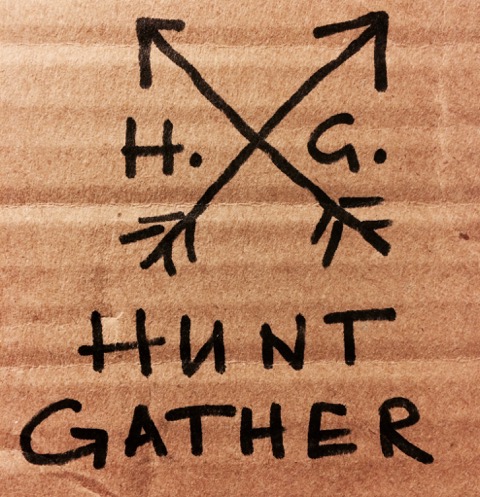 H. G.
HUNT
GATHER